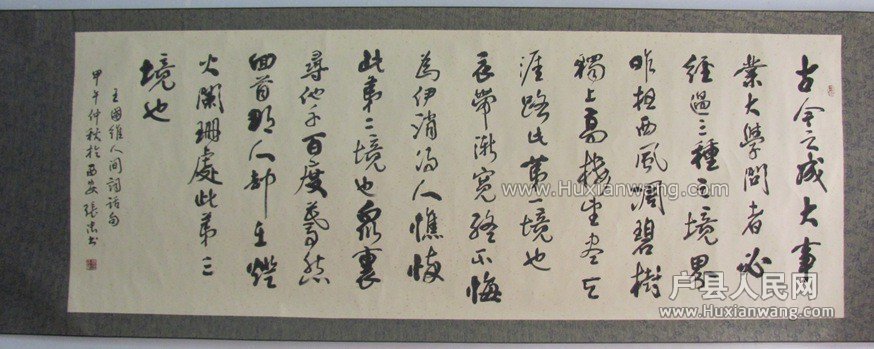 古今之成大事
業大學問者必
經過三種之境界
昨夜西風凋碧樹
獨上高樓望盡天
涯路此第一境也
衣帶漸寬終不悔
為伊消得人憔悴
此第二境也眾裏
尋他千百度驀然
回首那人卻在燈
火闌珊處此第三
境也
王國維人間詞話句
甲午仲秋於西安張忠書
www.Huxianwang.com
户县人民网
www.Huxianwang.com